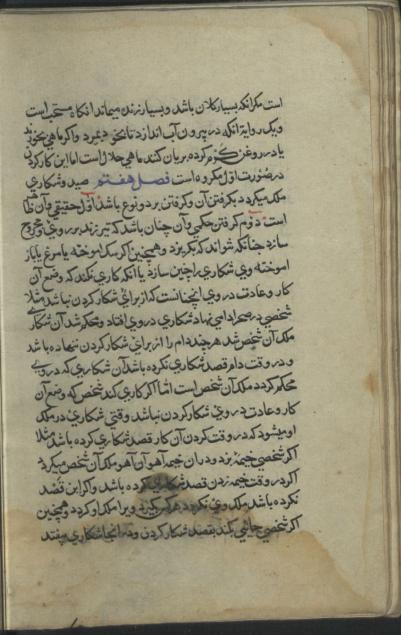 است مکر انکه بسیار کلان باشد و بسیار زنده میماند انکاه مستحب است
ویک روایة انکه در بیرون آب اندازد تا بخود بمیرد واکر ماهی بخورند
یا در روغن کرم کرده بریان کنند ماهی حلال است اما این کار کردن
در صورت اول مکروه است فصل هفتم صید وشکاری
ملک میکردد بکرفتن آن وکرفتن بر دو نوع باشد اول حقیقی وآن ظاهر
است دوم کرفتن حکمی وآن چنان باشد که تیر زند بر وی ومجروح
سازد چنانکه نتواند که بکریزد وهمچنین اکر سک اموخته یا مرغ یا باز
اموخته وی شکاری را چنین سازد یا انکه کاری نکند که وضع آن
کار وعادت در وی انچنانست که از برای شکار کردن نباشد مثلا
شخصی در صحرا دامی نهاد شکاری در وی افتاد ومحکم شد آن شکار
ملک آن شخص شد هر چند دام را از برای شکار کردن ننهاده باشد
ودر وقت دام قصد شکاری نکرده باشد آن شکاری که در وی
محکم کردد ملک آن شخص است اما اکر کاری کند شخص که وضع آن
کار وعادت در وی شکار کردن نباشد وقتی شکاری در ملک
او میشود که در وقت کردن آن کار قصد شکاری کرده باشد مثلا
اکر شخصی خیمه بزد ودر ان خیمه آهو آن آهو ملک آن شخص میکردد
اکر در وقت خیمه زدن قصد شکاری کرده باشد واکر این قصد
نکرده باشد ملک وی نکردد هر کس بکیرد ویرا ملک او کردد وهمچنین
اکر شخصی چاهی بکند بقصد شکار کردن ودر انجا شکاری بیفتد